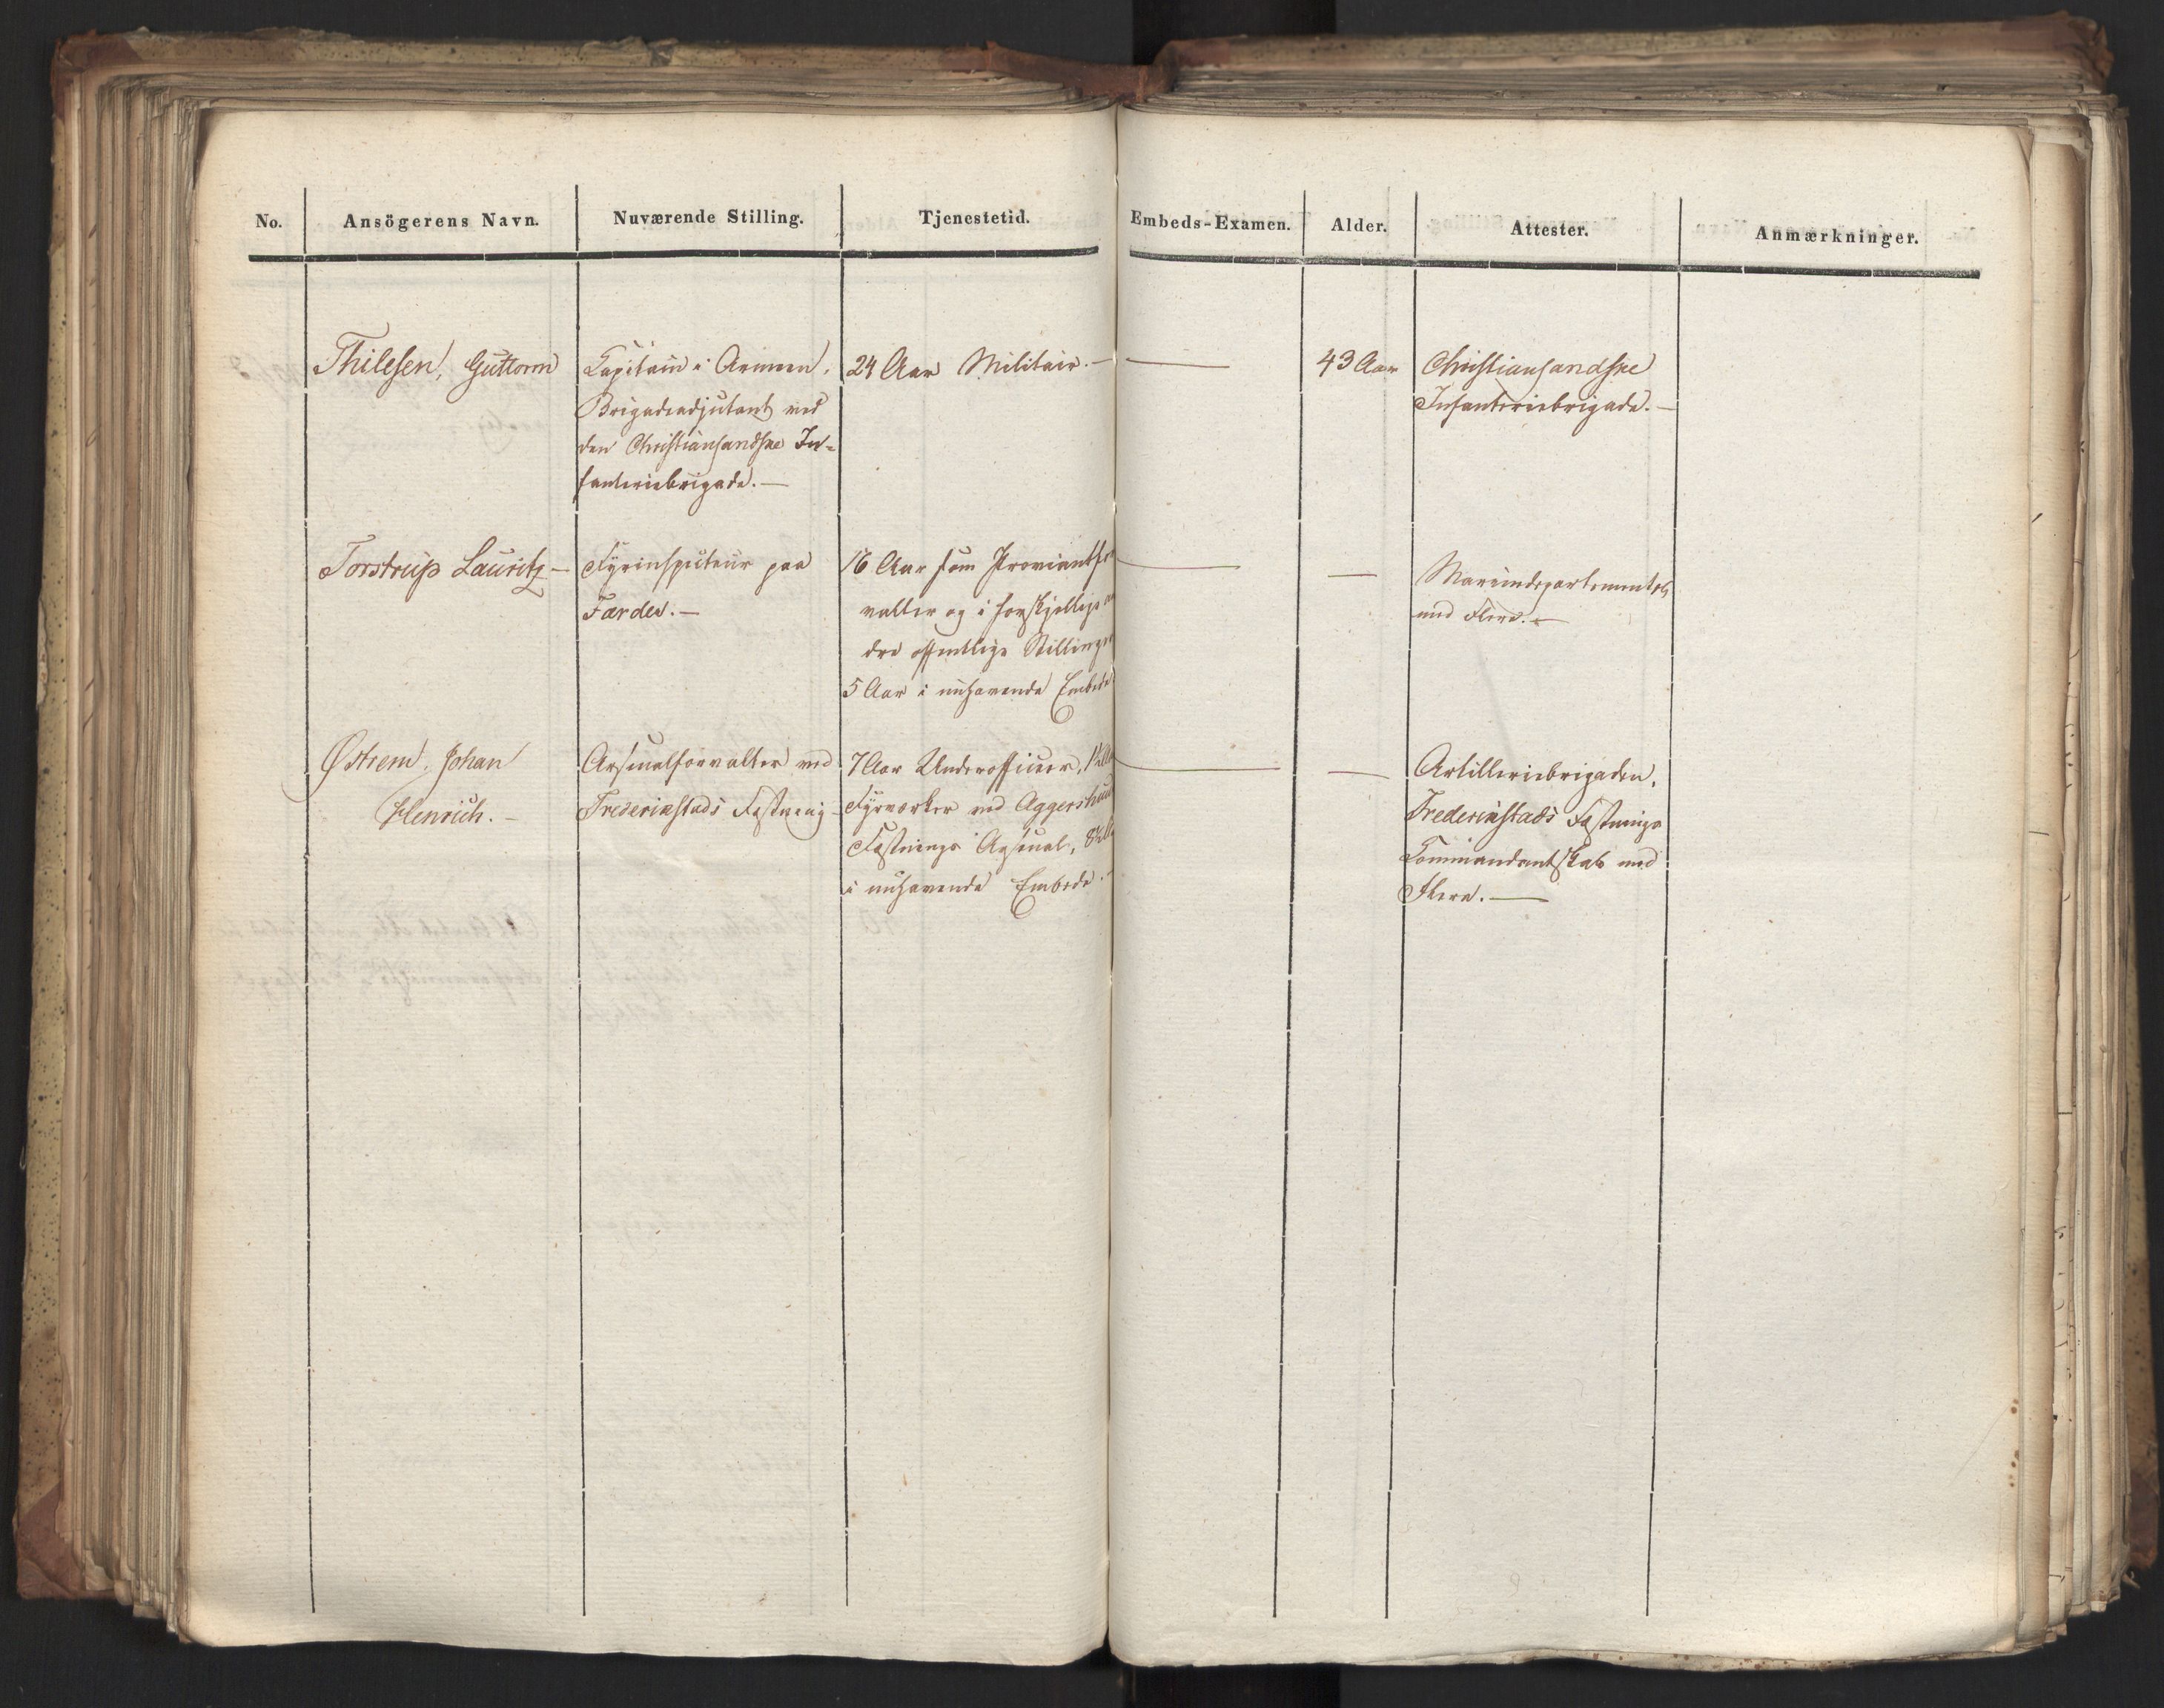 No. Ansögerens Navn. Nuværende Stilling. Tjenestetid. Embeds-Examen. Alder. Attester. Anmærkninger.
Thilesen, Guttorm
Capitain i Armeen,
Brigadeadjutant ved
den Christiansandske In-
fanteriebrigade. —
24 Aar Militair. —
—
43 Aar
Christiansandske
Infanteriebrigade. —
Torstrup Lauritz —
Fyrinspecteur paa
Færder. —
16 Aar som Proviantfor
valter og i forskjellige an
dre offentlige Stillinger
5 Aar i nuhavende Embede
—
—
Marinedepartementet
med Flere. —
Østrem, Johan
Henrich. —
Arsenalforvalter ved
Frederikstads Fæstning —
7 Aar Underofficeer, 1½ Aar
Fyrværker ved Aggershuus
Fæstnings Arsenal, 8½ Aar
i nuhavende Embede. —
—
—
Artilleriebrigaden,
Frederikstads Fæstnings
Commandantskab med
Flere. —